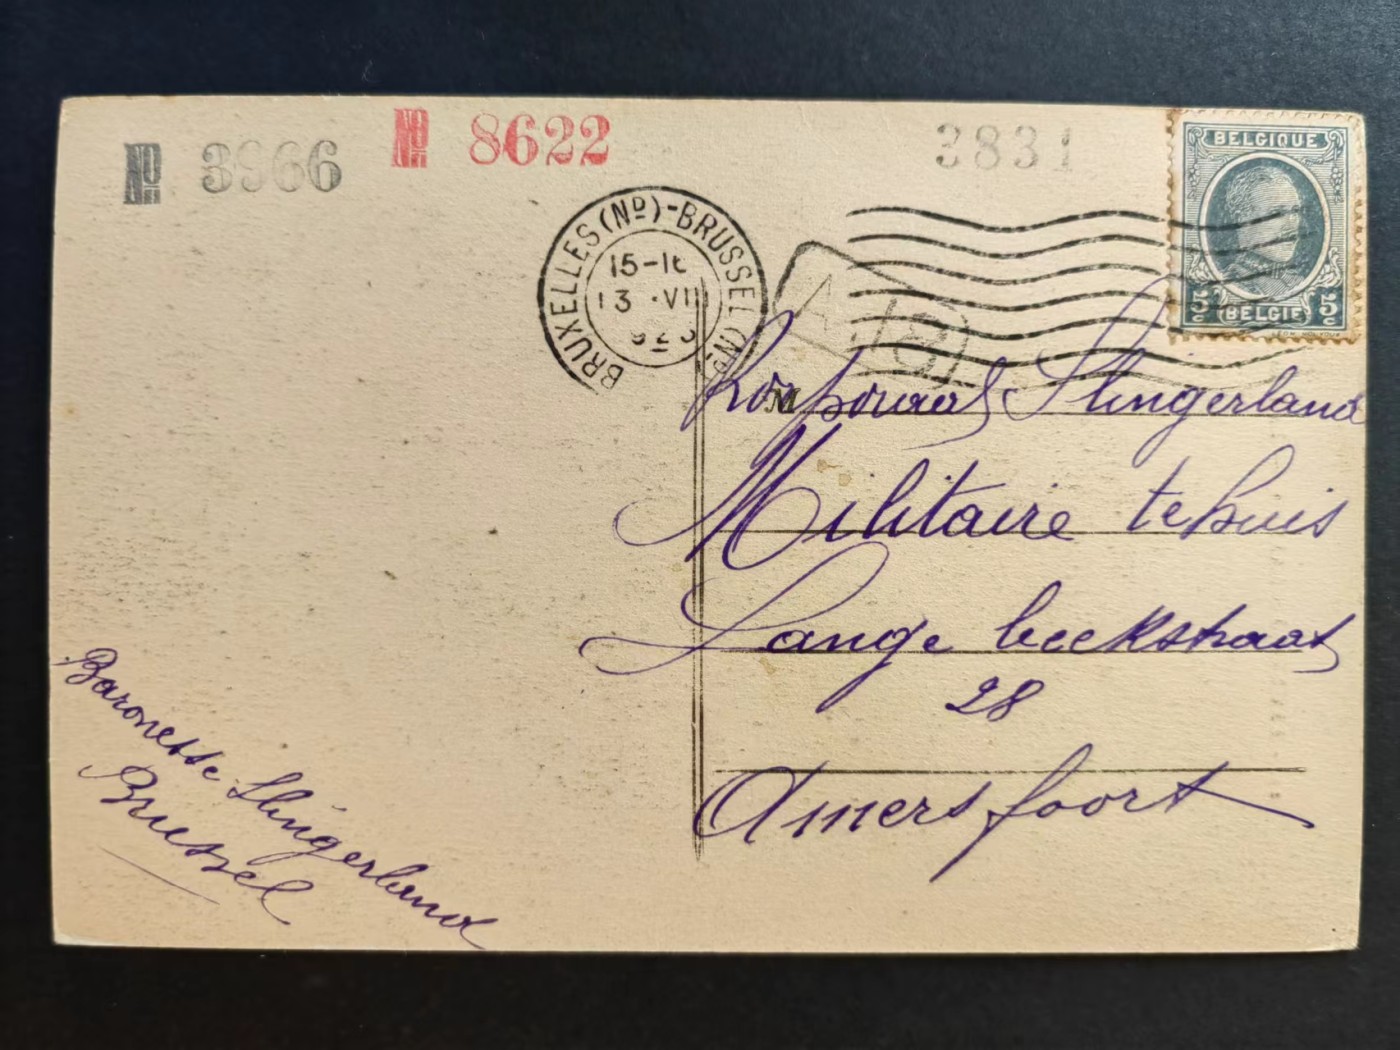 No 3966
No 8622
3831
BELGIQUE
5c 5c
BELGIË
BRUXELLES (ND) - BRUSSEL (ND)
15-16
13 VII
M
Korporaal Slingerland
Militaire tehuis
Lange beekstraat
28
Amersfoort
Baronesse Slingerland
Brussel